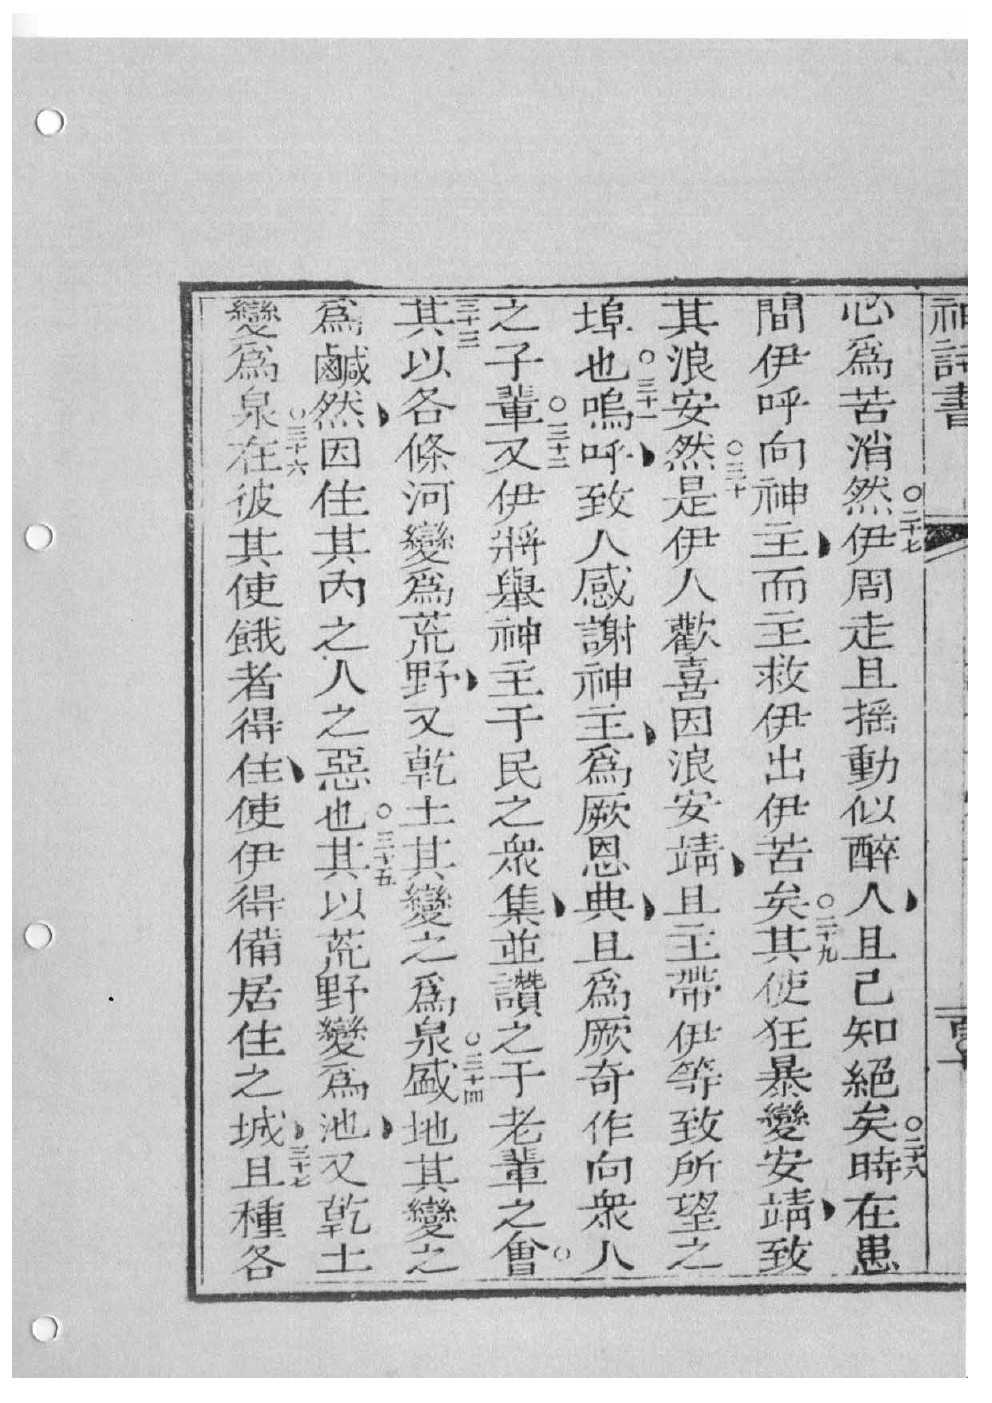 神詩書
心為苦消然○二十七伊周走且摇動似醉人且己知絕矣○二十八時在患
間伊呼向神主而主救伊出伊苦矣○二十九其使狂暴變安靖致
其浪安然○三十是伊人歡喜因浪安靖且主帶伊等致所望之
埠也○三十一嗚呼致人感謝神主為厥恩典且為厥奇作向衆人
之子輩○三十二又伊將舉神主于民之衆集並讚之于老輩之會○
三十三其以各條河變為荒野又乾土其變之為泉○三十四盛地其變之
為鹹然因住其內之人之惡也○三十五其以荒野變為池又乾土
變為泉○三十六在彼其使餓者得住使伊得備居住之城三十七且種各